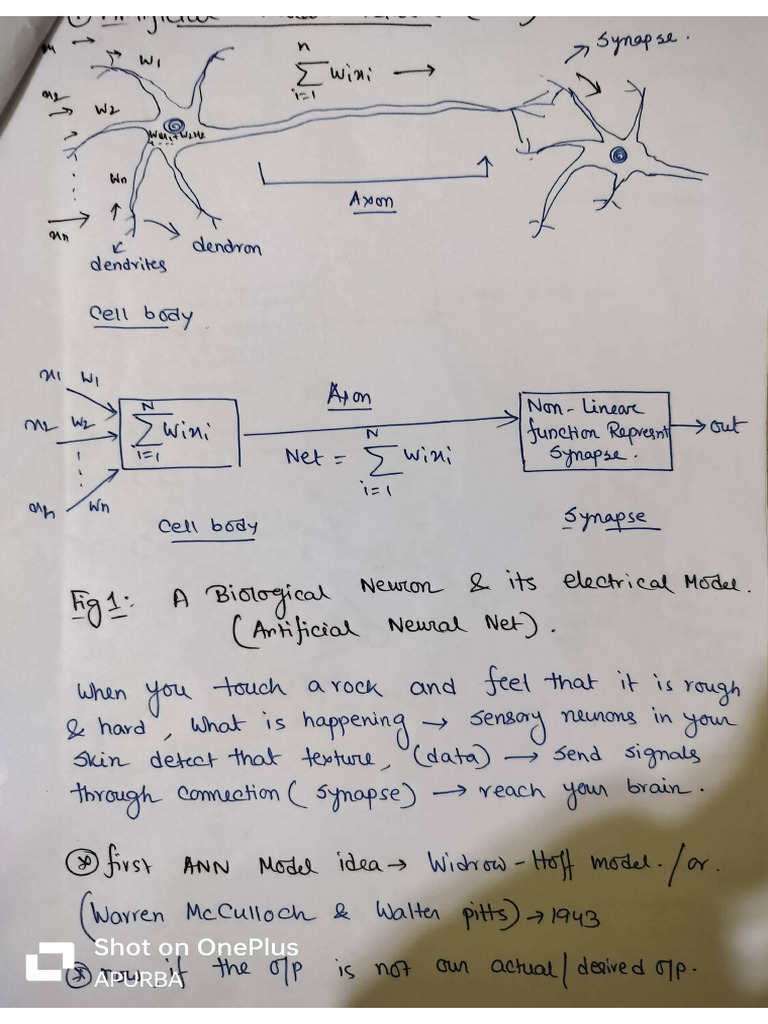 Artificial
x1 → w1
n
∑ wixi →
i=1
Synapse.
x2 w2
w1x1+w2x2
wn
xn
Axon
dendron
dendrites
Cell body
x1 w1
x2 w2
xn wn
N
∑ wixi
i=1
Cell body
Axon
N
Net = ∑ wixi
i=1
Non-Linear
function Represnt
Synapse.
→ out
Synapse
Fig 1: A Biological Neuron & its electrical Model.
(Artificial Neural Net).
When you touch a rock and feel that it is rough
& hard, What is happening → sensory neurons in your
skin detect that texture, (data) → send signals
through Connection (synapse) → reach your brain.
* first ANN Model idea → Widrow-Hoff model. / or.
(Warren McCulloch & Walter pitts) → 1943
* now if the o/p is not our actual/desired o/p.
Shot on OnePlus
APURBA